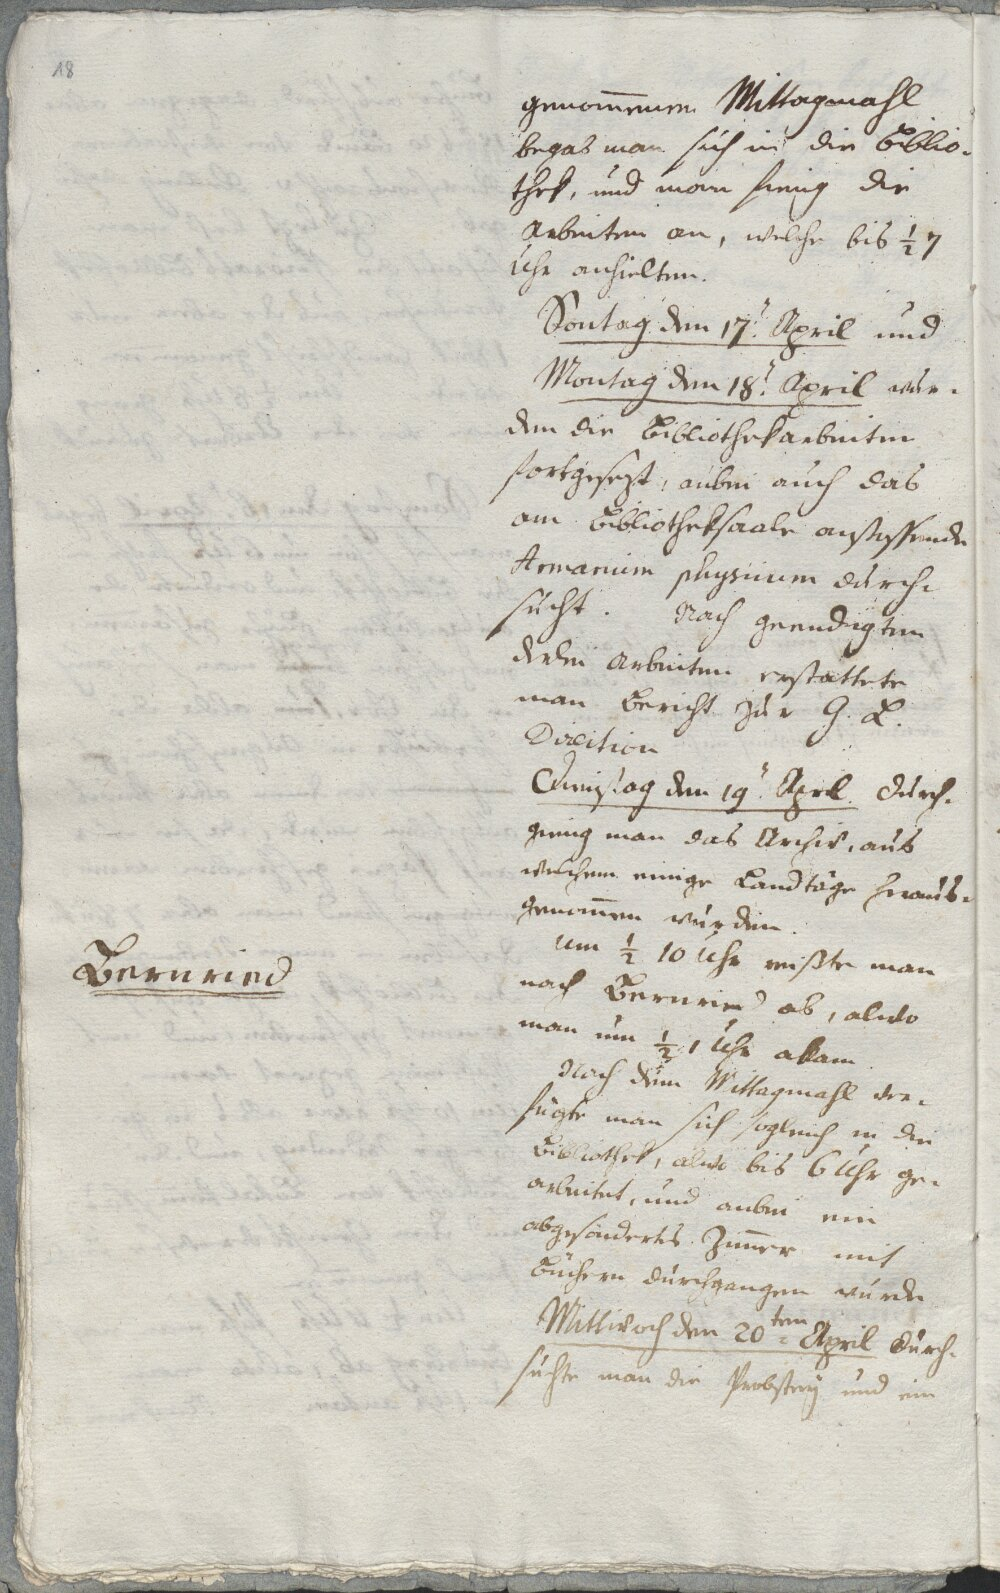 18
genom̅enen Mittagmahl
begab man sich in die Biblio-
thek, und man fieng die
Arbeiten an, welche bis ½ 7
Uhr anhielten.
Sontag den 17. April und
Montag den 18. April wur-
den die Bibliothekarbeiten
fortgesezt, anbei auch das
am Bibliotheksaale anstossende
Armarium physicum durch-
sucht. Nach geendigten
derlei Arbeiten erstattete
man Bericht zur G. L.
Direction
Dienstag den 19. April durch-
gieng man das Archiv, aus
welchem einige Landtäge heraus-
genom̅en wurden.
Um ½ 10 Uhr reißte man
Bernried
nach Bernried ab, alwo
man um ½ 1 Uhr ankam
Nach dem Mittagmahl ver-
fügte man sich sogleich in die
Bibliothek, alwo bis 6 Uhr ge-
arbeitet, und anbei ein
abgesöndertes Zim̅er mit
Büchern durchgangen wurde
Mittwoch den 20ten April durch-
suchte man die Probstey und ein